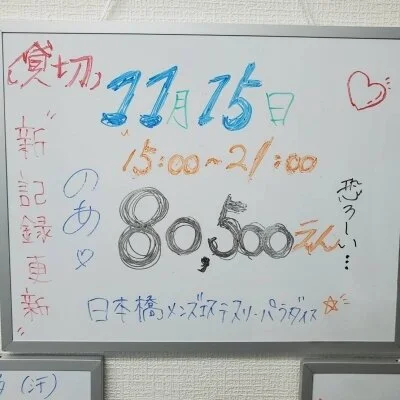 (貸切)
11月15日
"15:00~21:00
"新記録更新"
のあ♡
80,500えん
恐ろしい…
日本橋メンズエステスリーパラダイス☆
(汗)